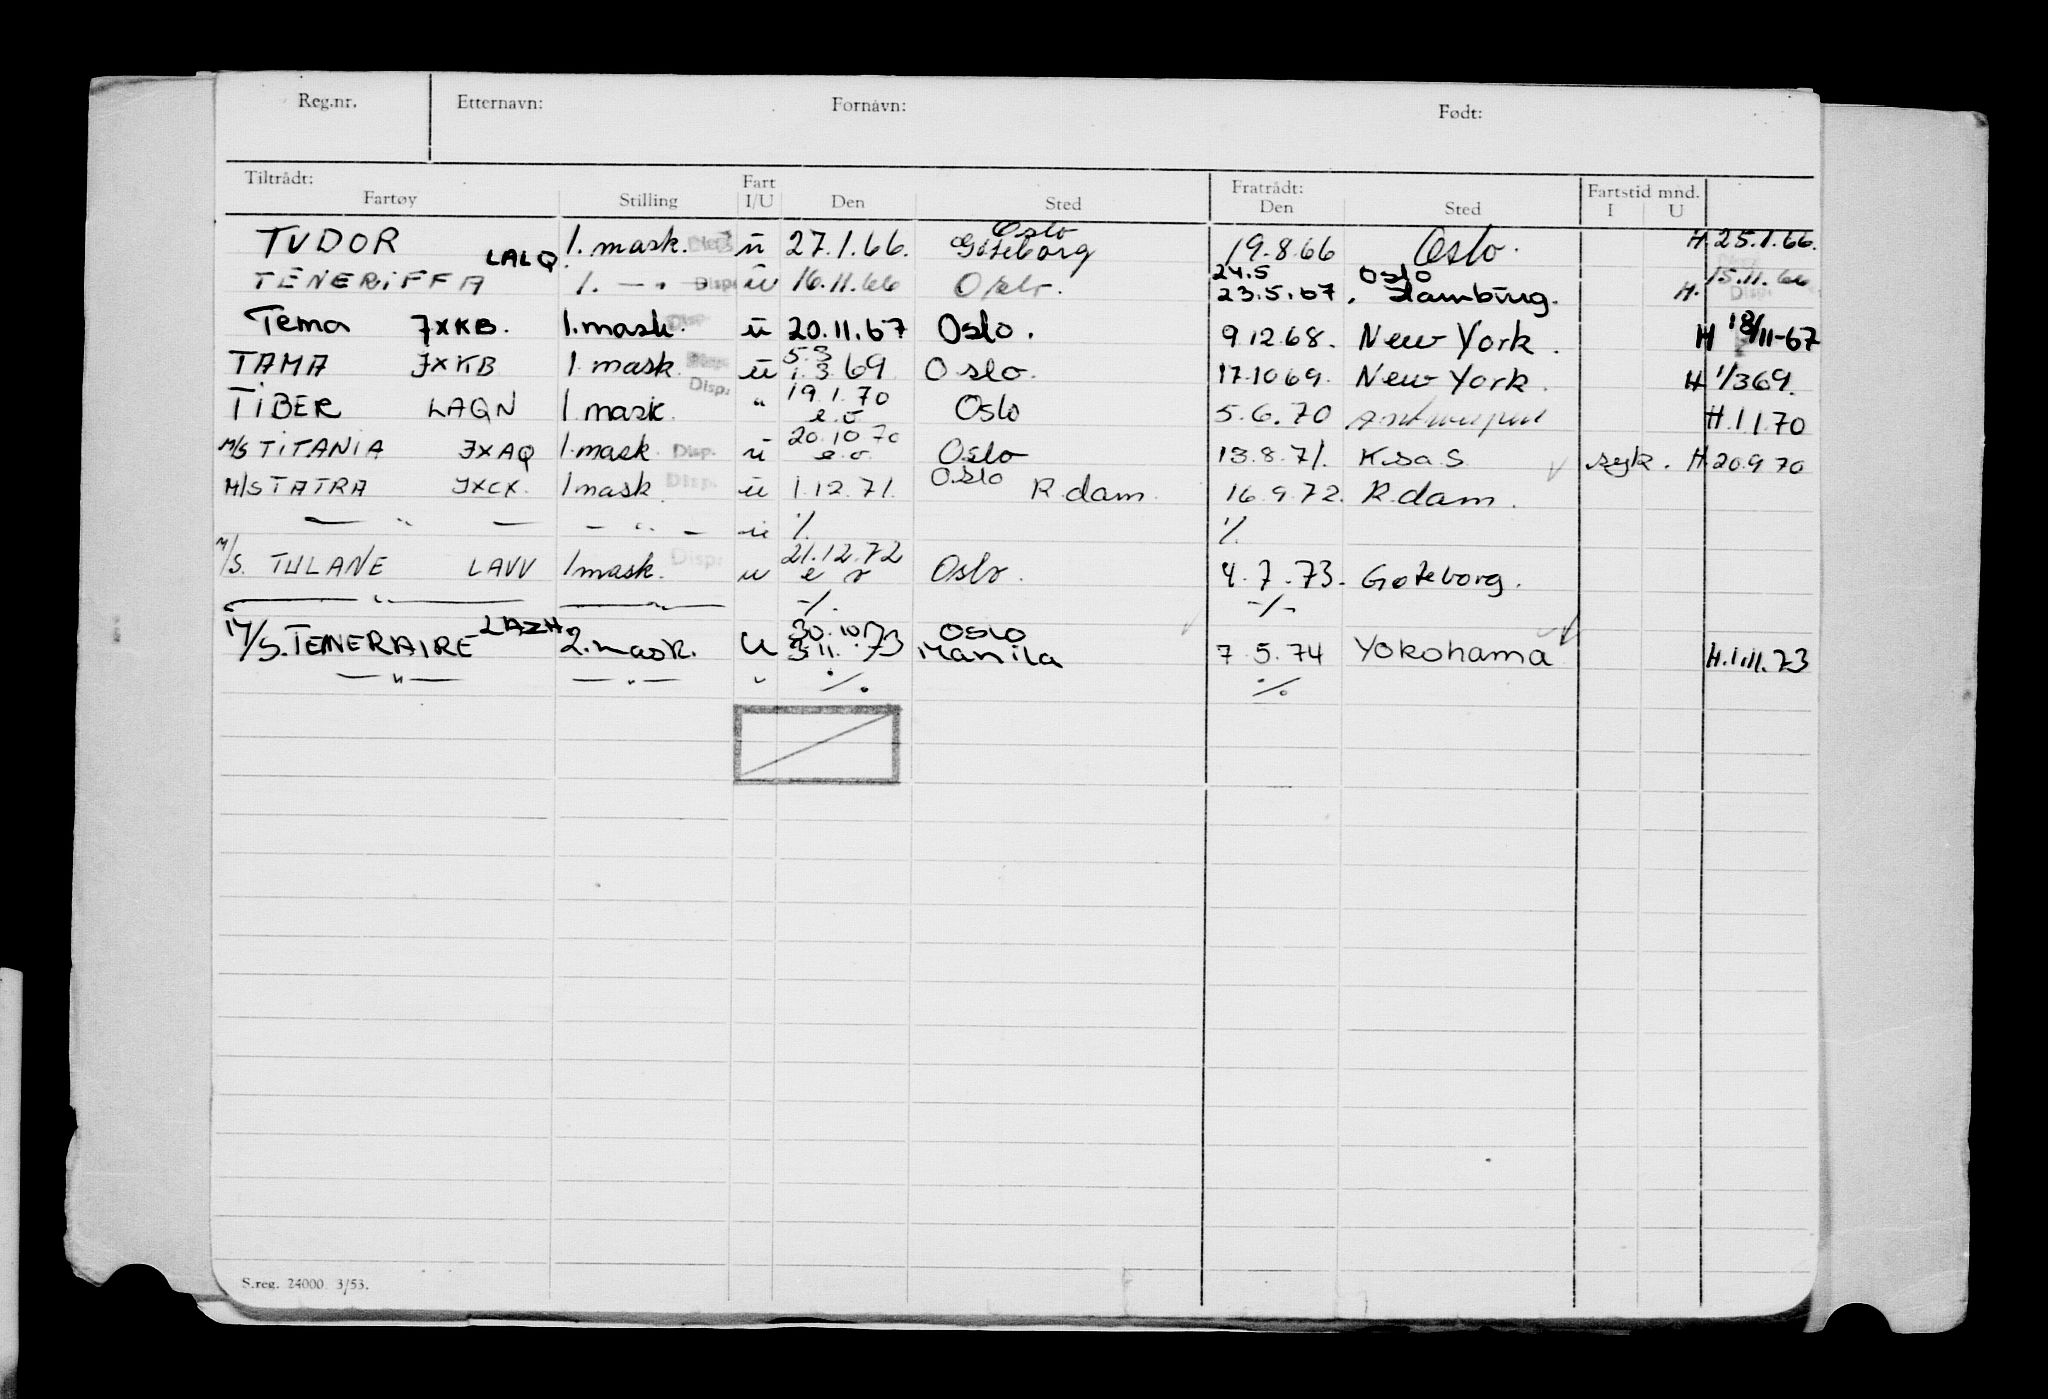 Reg.nr. Etternavn: Fornavn: Født:
Tiltrådt: Fart Fratrådt: Fartstid mnd.
Fartøy Stilling I/U Den Sted Den Sted I U
Oslo
TUDOR 1. mask. Disp ü 27.1.66. Göteborg 19.8.66 Oslo. H. 25.1.66.
LALQ 24.5 Oslo
TENERIFFA 1. — " — Disp ü 16.11.66 Oslo. 23.5.67. Hamburg. H. 15.11.66 Disp.
Tema JXKB. 1. mask. Disp ü 20.11.67 Oslo. 9.12.68. New York. H 18/11-67
5.3
TAMA JXKB 1. mask. Disp. ü 1.3.69 Oslo. 17.10 69. New York. H 1/3 69.
Disp. 19.1.70
TIBER LAQN 1. mask. " e.o Oslo 5.6.70 Antwerpen H.1 1 70
20.10 70
M/S TITANIA JXAQ 1. mask. Disp. ü e.o. Oslo 13.8.71. K.sa S syk. H 20.9 70
Oslo
M/S TATRA JXCX. 1 mask. Disp. ü 1.12.71. R.dam. 16.9.72. R.dam.
— " — — " — ü ·/. ·/.
21.12.72
M/S. TULANE LAVV 1 mask. Disp: u e o Oslo. 4.7.73. Goteborg.
— " — — " — -/. -/-
LAZH 30.10.73 OSLO
M/S. TEMERAIRE 2. mask. U 3.11.73 Manila 7.5.74 Yokohama H.1.11.73
— " — — " — " ·/. ·/.
S.reg. 24000. 3/53.